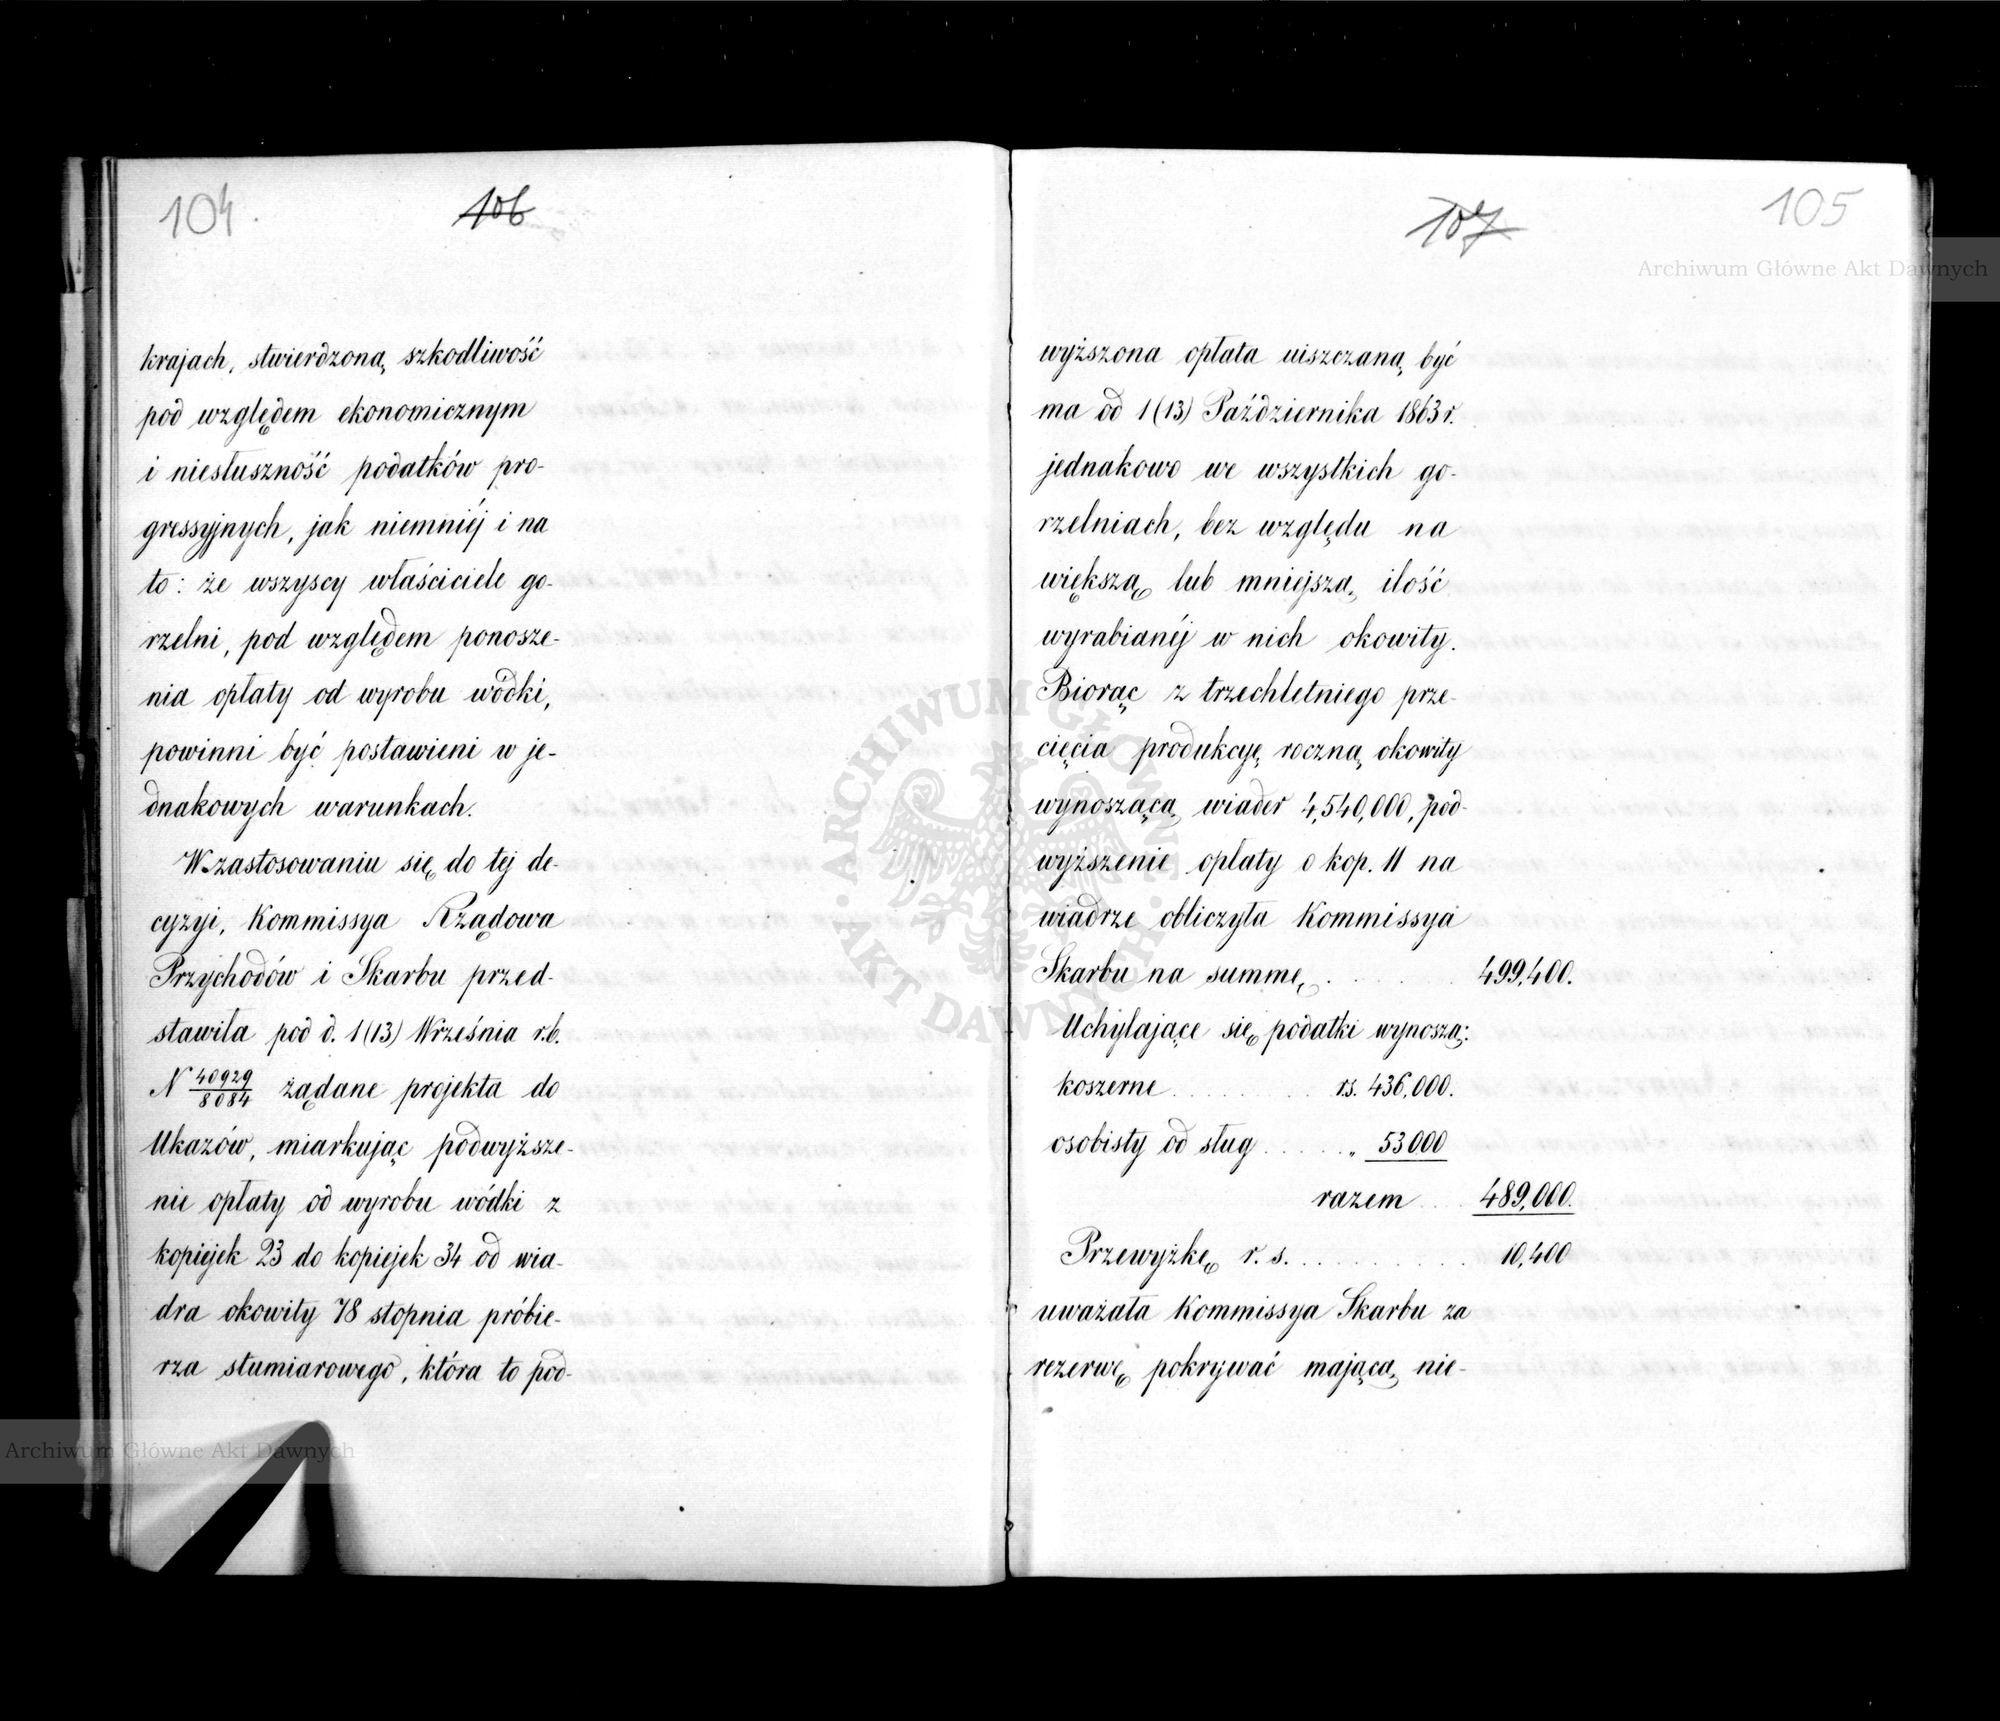 104.
106
krajach, stwierdzoną szkodliwość
pod względem ekonomicznym
i niesłuszność podatków pro-
gressyjnych, jak niemniéj i na
to: że wszyscy właściciele go-
rzelni, pod względem ponosze-
nia opłaty od wyrobu wódki,
powinni być postawieni w je-
dnakowych warunkach.
W zastosowaniu się do tej de-
cyzyi, Kommissya Rządowa
Przychodów i Skarbu przed-
stawiła pod d. 1 (13) Września r.b.
N 40929/8084 żądane projekta do
Ukazów, miarkując podwyższe-
nie opłaty od wyrobu wódki z
kopiejek 23 do kopiejek 34 od wia-
dra okowity 78 stopnia próbie-
rza stumiarowego, która to pod-
107
105
wyższona opłata uiszczaną być
ma od 1 (13) Października 1863 r.
jednakowo we wszystkich go-
rzelniach, bez względu na
większą lub mniejszą ilość
wyrabianéj w nich okowity.
Biorąc z trzechletniego prze-
cięcia produkcyę roczną okowity
wynoszącą wiader 4,540,000, pod-
wyższenie opłaty o kop. 11 na
wiadrze obliczyła Kommissya
Skarbu na summę . . . . . . 499,400.
Uchylające się podatki wynoszą:
koszerne . . . . . . . . . rs. 436,000.
osobisty od sług . . . . . „ 53000
razem . . . . 489,000.
Przewyżkę r. s. . . . . . . . . . . 10,400
uważała Kommissya Skarbu za
rezerwę pokrywać mającą nie-
Archiwum Główne Akt Dawnych
Archiwum Główne Akt Dawnych
ARCHIWUM GŁÓWNE AKT DAWNYCH